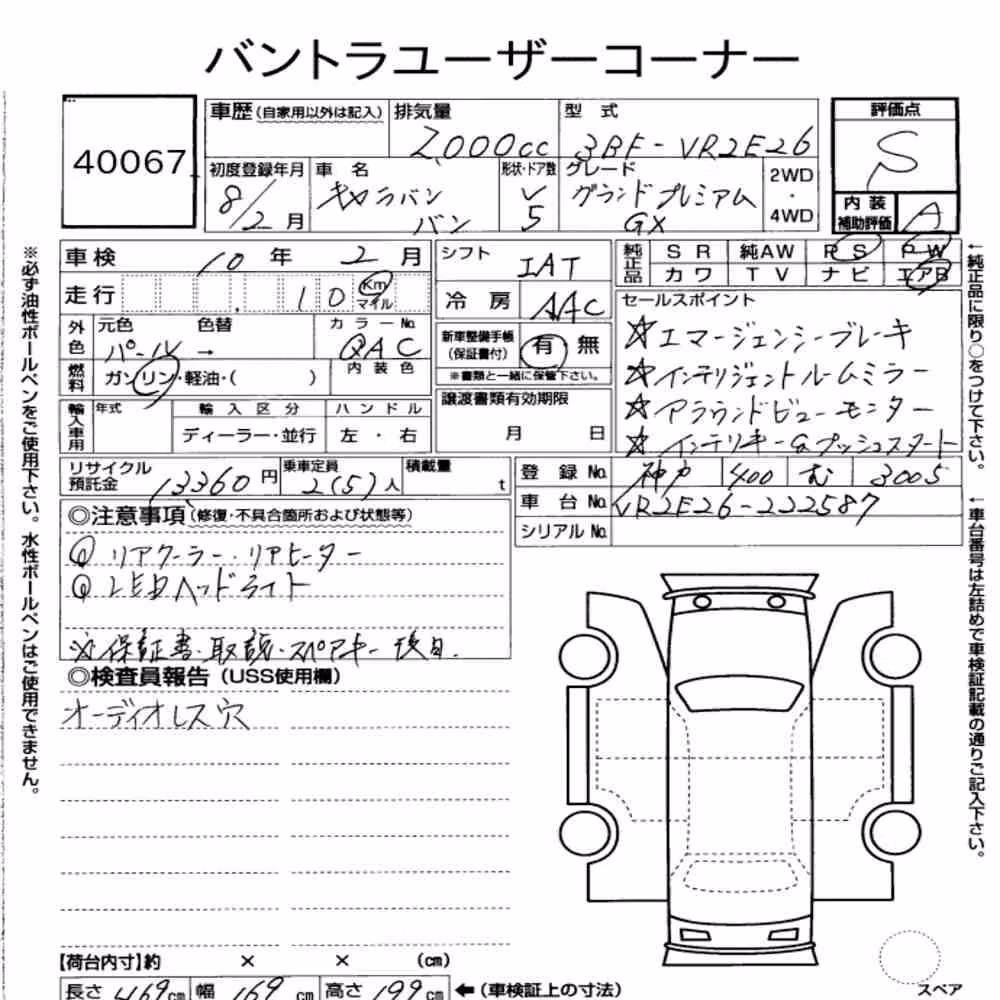 バントラユーザーコーナー
40067
車歴 (自家用以外は記入)
排気量
2,000cc
型式
3BF-VR2E26
評価点
S
初度登録年月
8/2月
車名
キャラバン
バン
形状・ドア数
V
5
グレード
グランドプレミアム
GX
2WD
・
4WD
内装
補助評価
A
車検 10年 2月
シフト
IAT
純正品
SR 純AW PS PW
カワ TV ナビ エアB
走行 10 Km マイル
冷房 AAC
セールスポイント
☆エマージェンシーブレーキ
☆インテリジェントルームミラー
☆アラウンドビューモニター
☆インテリキー&プッシュスタート
外色
元色 色替
パール→
カラーNo.
QAC
新車整備手帳
(保証書付)
有 無
※書類と一緒に保管下さい。
燃料
ガソリン・軽油・( )
内装色
輸入車用
年式
輸入区分
ディーラー・並行
ハンドル
左・右
譲渡書類有効期限
月 日
リサイクル
預託金
13360円
乗車定員
2(5)人
積載量
t
登録No. 神戸 400 む 3005
車台No. VR2E26-222587
シリアルNo.
◎注意事項(修復・不具合箇所および状態等)
リアクーラー・リアヒーター
LEDヘッドライト
※保証書・取説・スペアキー後日.
◎検査員報告(USS使用欄)
オーディオレス穴
【荷台内寸】約 × × (cm)
長さ 469cm 幅 169cm 高さ 199cm ←(車検証上の寸法)
スペア
※必ず油性ボールペンをご使用下さい。水性ボールペンはご使用できません。
←純正品に限り○をつけて下さい。
←車台番号は左詰めで車検証記載の通りご記入下さい。